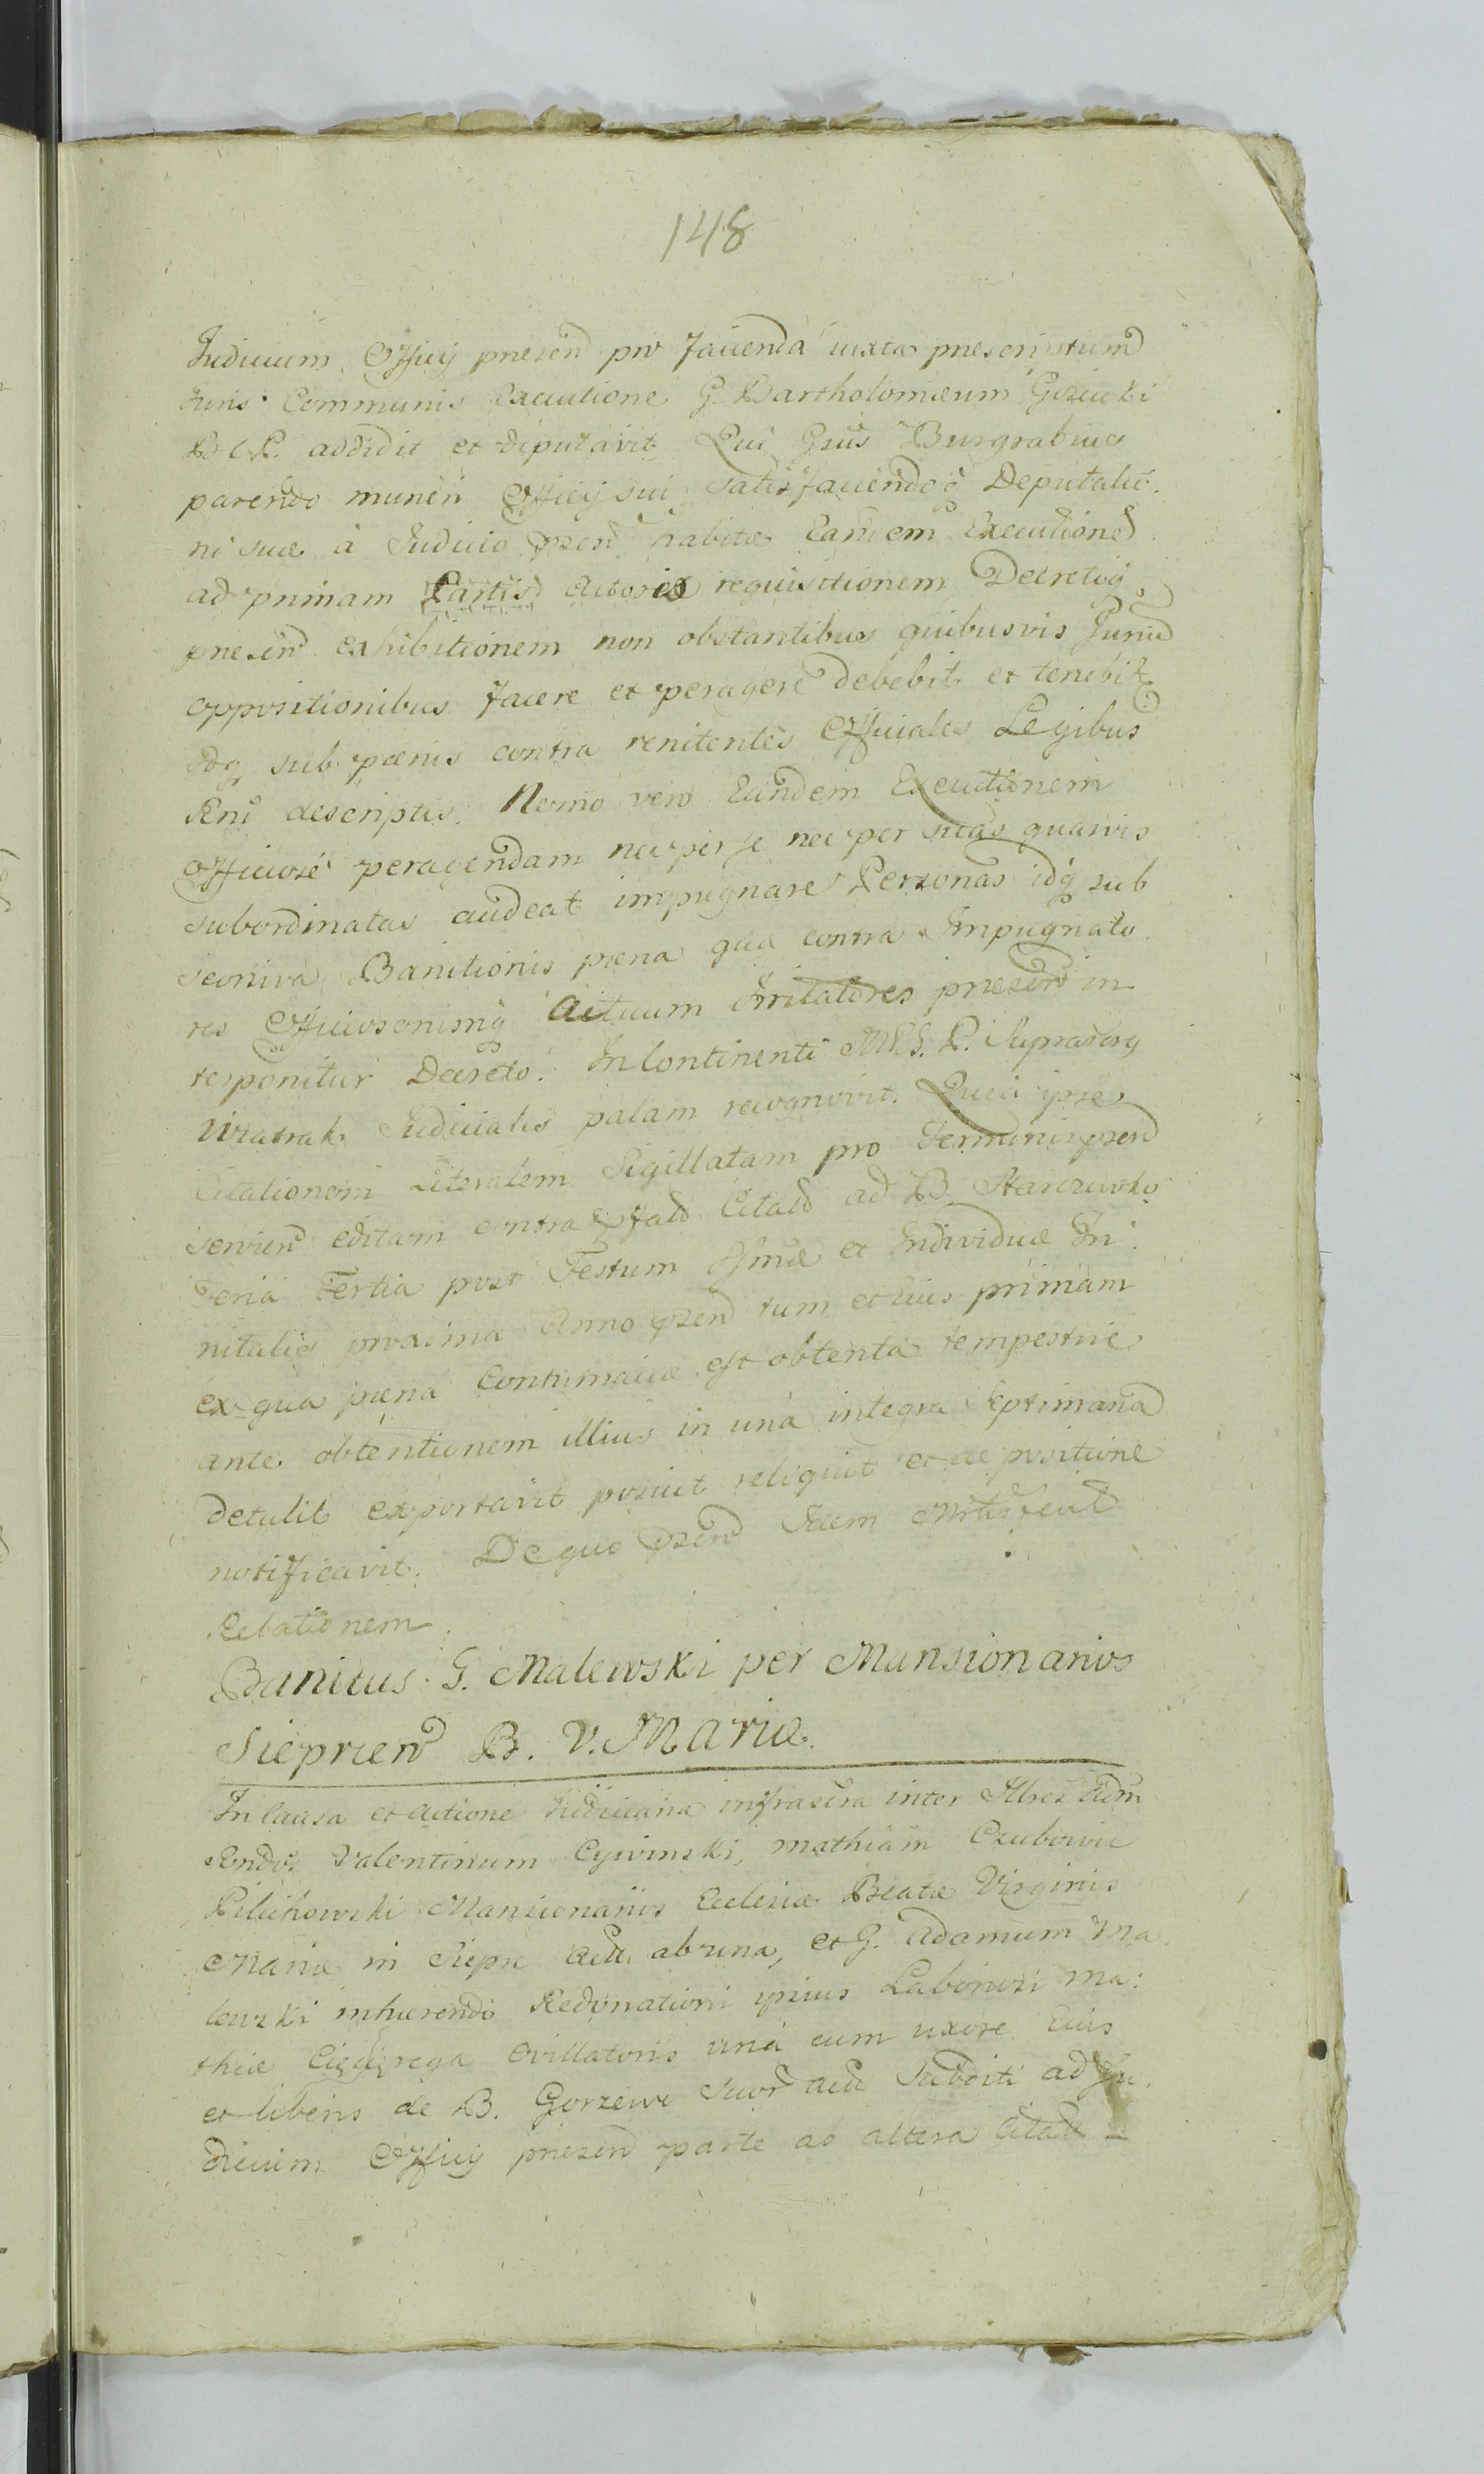 148
Judicium Officij presen pro facienda iuxta prescriptum
Juris Communis Executione G. Bartholomæum Gozucki
B C P. addidit et deputavit Qui Gsus Burgrabius
parendo muneri Officij sui satisfaciendoq Deputatio
ni suæ à Judicio psen habitæ Eandem Executione
ad primam Partis Actoreæ requisitionem Decretiq
presen exhibitionem non obstantibus quibusvis Juriu
oppositionibus facere et peragere debebit et tenebit
Idq sub pœnis contra renitentes Officiales Legibus
Rni descriptis. Nemo vero Eandem Executionem
Officiose peragendam nec per se nec per suas quasvis
subordinatas audeat impugnare Personas idq sub
pœna Banitionis pœna quæ contra Impugnato
res Officiosorumq Actuum Irritatores presen in
terponitur Decreto. In Continenti Mts. P. Suprascrq
Judicialis palam recognovit. Quia ipse
Citationem Literalem Sigillatam pro Terminis psen
servien editam contra pfatu Citatu ad B. Starczewko
Feria Tertia post Festum Ssmæ et Individuæ Tri
nitatis proxima Anno psen tum et Eius primam
ex qua pœna Contumaciæ est obtenta tempestive
ante obtentionem illius in una integra Septimana
detulit exportavit posuit reliquit et de positione
notificavit. De quo psen Idem Mrtis fecit
Relationem.
Banitus G. Malewski per Mansionarios
Sieprien B. V. Mariæ.
In Causa et Actione Judiciaria infrascra inter Illres Adm
Rndos Valentinum Cywinski, Mathiam
Pilichowski Mansionarios Ecclesiæ Beatæ Virginis
Mariæ in Siepre Act. ab una, et G. Adamum Ma
lewski inhærendo Redonationi ipsius Laboriosi Ma:
thiæ ovillatoris una cum uxore Eius
et liberis de B. Gorzewo Suor Act. Subditi ad Ju
dicium Officij presen parte ab altera Citatu